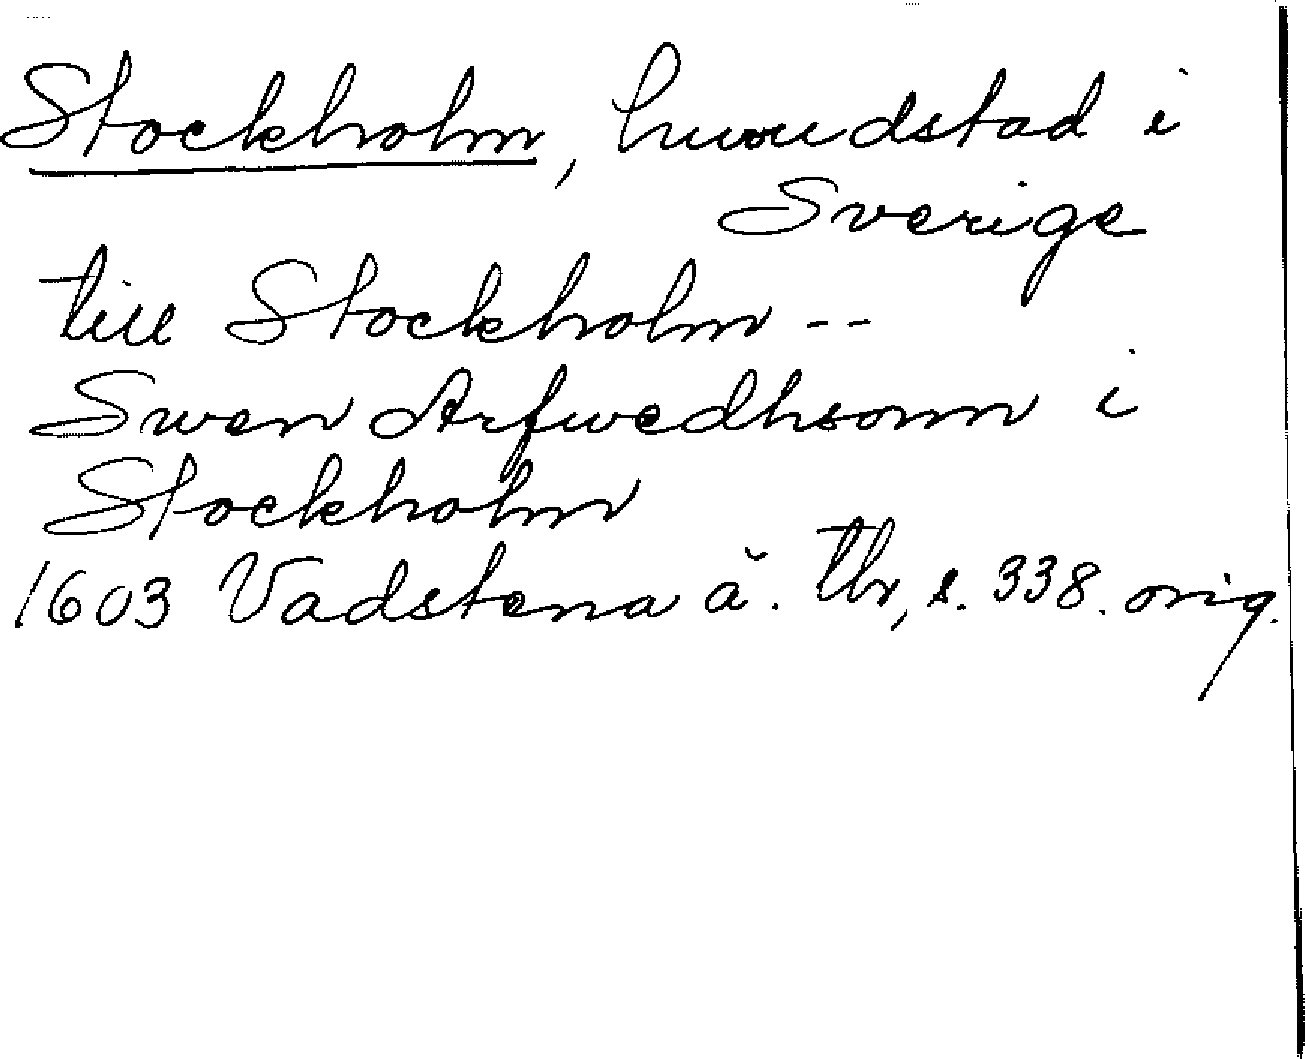 Stockholm, huvudstad i
Sverige
till Stockholm --
Swen Arfwedhsonn i
Stockholm
1603 Vadstena ä. tbr, s. 338. orig.